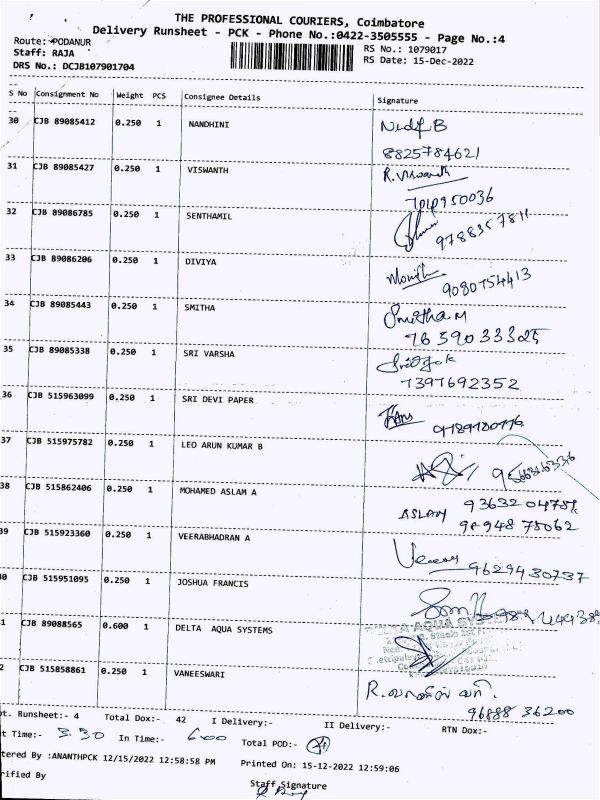 THE PROFESSIONAL COURIERS, Coimbatore
Delivery Runsheet - PCK - Phone No.:0422-3505555 - Page No.:4
Route: PODANUR
RS No.: 1079017
Staff: RAJA
RS Date: 15-Dec-2022
DRS No.: DCJB107901704
S No Consignment No Weight PCS Consignee Details Signature
30 CJB 89085412 0.250 1 NANDHINI
8825784621
31 CJB 89085427 0.250 1 VISWANTH R.Viswanth
32 CJB 89086785 0.250 1 SENTHAMIL
9788357811
33 CJB 89086206 0.250 1 DIVIYA
9080754413
34 CJB 89085443 0.250 1 SMITHA Smitha M
7659033325
35 CJB 89085338 0.250 1 SRI VARSHA
7397692352
36 CJB 515963099 0.250 1 SRI DEVI PAPER
37 CJB 515975782 0.250 1 LEO ARUN KUMAR B
38 CJB 515862406 0.250 1 MOHAMED ASLAM A
ASLAM
39 CJB 515923360 0.250 1 VEERABHADRAN A
9629430737
0 CJB 515951095 0.250 1 JOSHUA FRANCIS
1 CJB 89088565 0.600 1 DELTA AQUA SYSTEMS
AQUA SYSTE
2 CJB 515858861 0.250 1 VANEESWARI
96888 36200
t. Runsheet:- 4 Total Dox:- 42 I Delivery:- II Delivery:- RTN Dox:-
t Time:- 3.30 In Time:- 6.00 Total POD:-
tered By :ANANTHPCK 12/15/2022 12:58:58 PM Printed On: 15-12-2022 12:59:06
rified By
Staff Signature